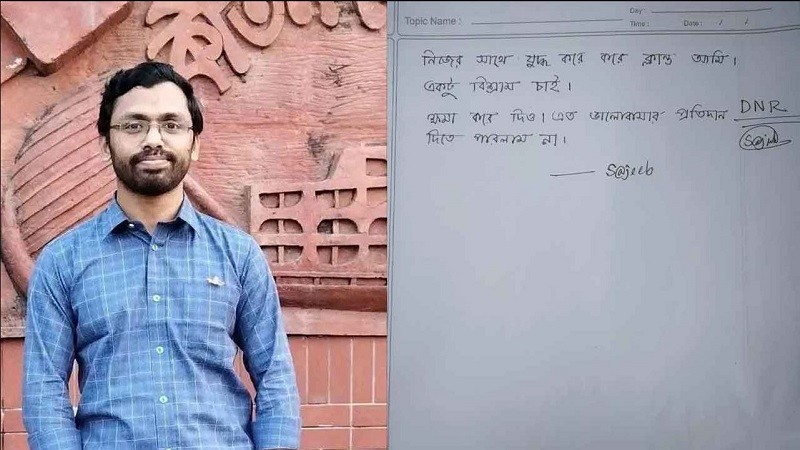 Topic Name :
Day :
Time :
Date : / /
নিজের সাথে যুদ্ধ করে করে ক্লান্ত আমি।
একটু বিশ্রাম চাই।
ক্ষমা করে দিও। এত ভালোবাসার প্রতিদান
দিতে পারলাম না।
— S@jeeb
DNR